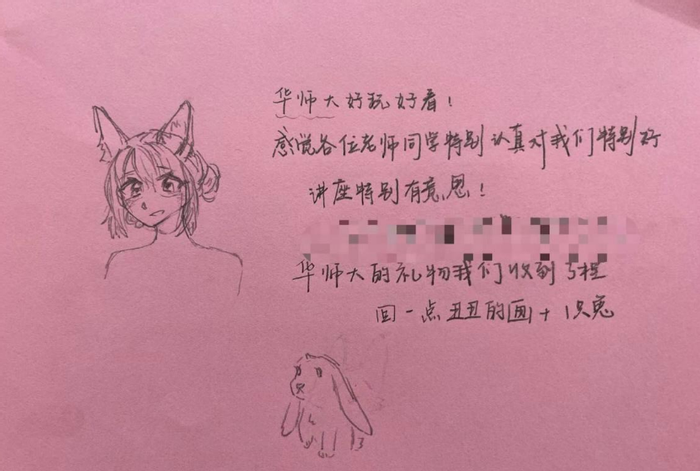 华师大好玩好看！
感觉各位老师同学特别认真对我们特别好
讲座特别有意思！
华师大的礼物我们收到了哩
回一点丑丑的画+1只兔